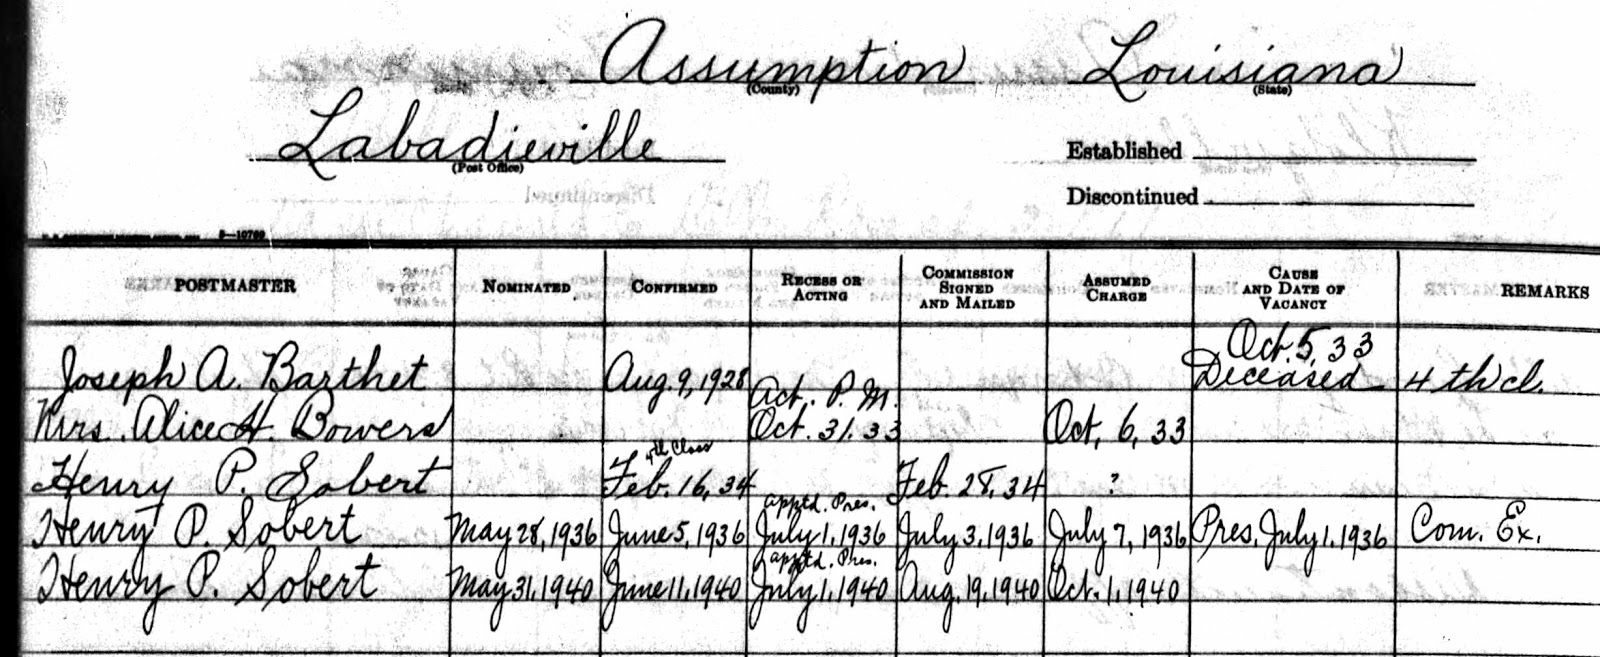 Assumption Louisiana
(County) (State)
Labadieville
(Post Office)
Established
Discontinued
5—10769
POSTMASTER NOMINATED CONFIRMED RECESS OR ACTING COMMISSION SIGNED AND MAILED ASSUMED CHARGE CAUSE AND DATE OF VACANCY REMARKS
Joseph A. Barthet Aug. 9, 1928 Oct. 5, 33 Deceased 4 th cl.
Mrs. Alice H. Bowers Act. P. M. Oct. 31. 33 Oct. 6, 33
Henry P. Sobert 4th Class Feb. 16, 34 Feb. 28, 34 ?
Henry P. Sobert May 28, 1936 June 5, 1936 apptd. Pres. July 1, 1936 July 3, 1936 July 7, 1936 Pres. July 1, 1936 Com. Ex.
Henry P. Sobert May 31, 1940 June 11, 1940 apptd. Pres. July 1, 1940 Aug. 19, 1940 Oct. 1, 1940